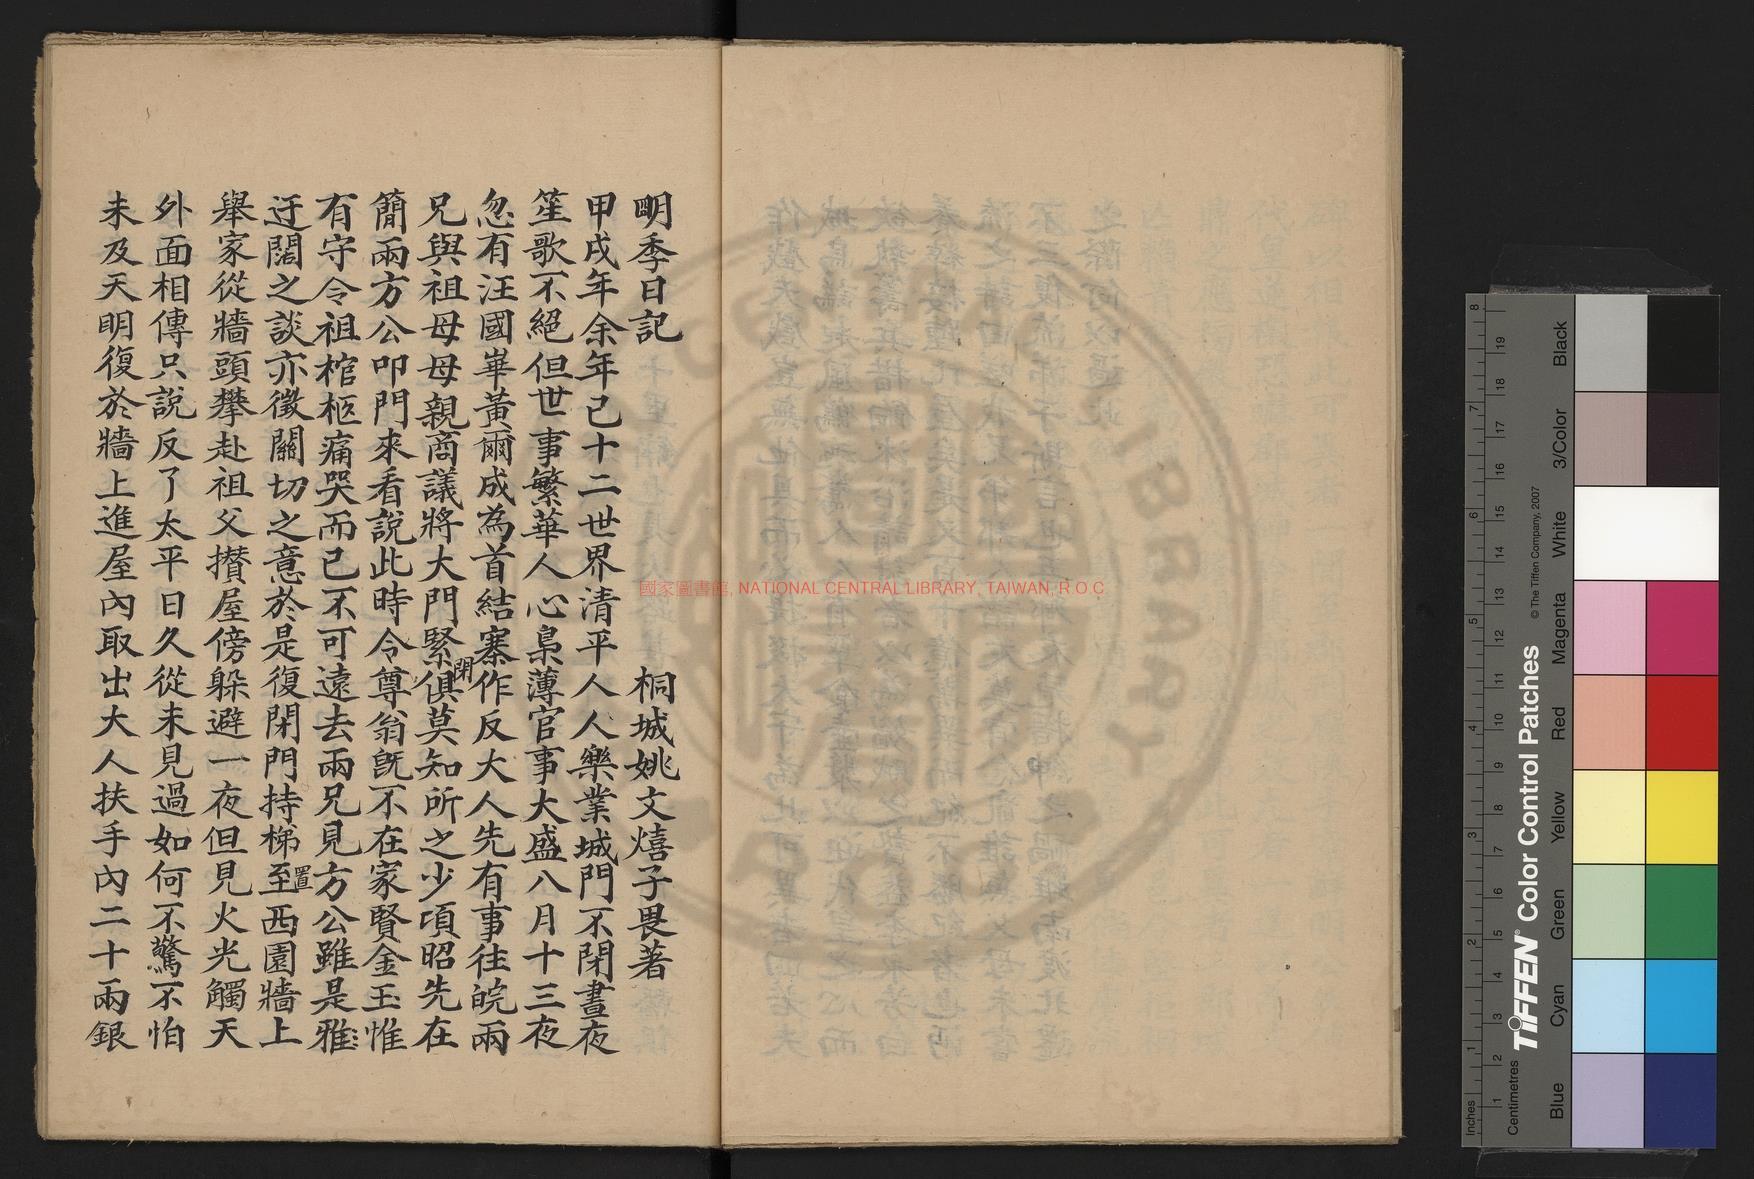 明季日記
桐城姚文熺子畏著
甲戌年余年已十二世界清平人人樂業城門不閉晝夜
笙歌不絕但世事繁華人心梟薄官事大盛八月十三夜
忽有汪國崋黃爾成為首結寨作反大人先有事往皖兩
兄與祖母母親商議將大門緊閉俱莫知所之少頃昭先在
簡兩方公叩門來看說此時令尊翁旣不在家賢金玉惟
有守令祖棺柩痛哭而已不可遠去兩兄見方公雖是雅
迂闊之談亦徵關切之意於是復閉門持梯至置西園牆上
舉家從牆頭攀赴祖父攢屋傍躲避一夜但見火光觸天
外面相傳只說反了太平日久從未見過如何不驚不怕
未及天明復於牆上進屋內取出大人扶手內二十兩銀
國家圖書館, NATIONAL CENTRAL LIBRARY, TAIWAN, R.O.C
TIFFEN® Color Control Patches
© The Tiffen Company, 2007
Inches
Centimetres
Blue
Cyan
Green
Yellow
Red
Magenta
White
3/Color
Black